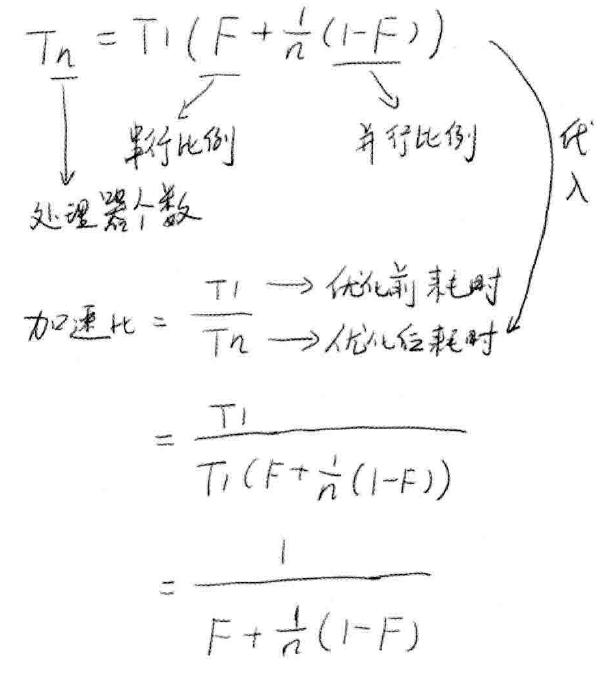 Tn = T1(F + 1/n(1-F))
串行比例 并行比例
代入
处理器个数
加速比 = T1/Tn
→ 优化前耗时
→ 优化后耗时
= T1/(T1(F + 1/n(1-F)))
= 1/(F + 1/n(1-F))